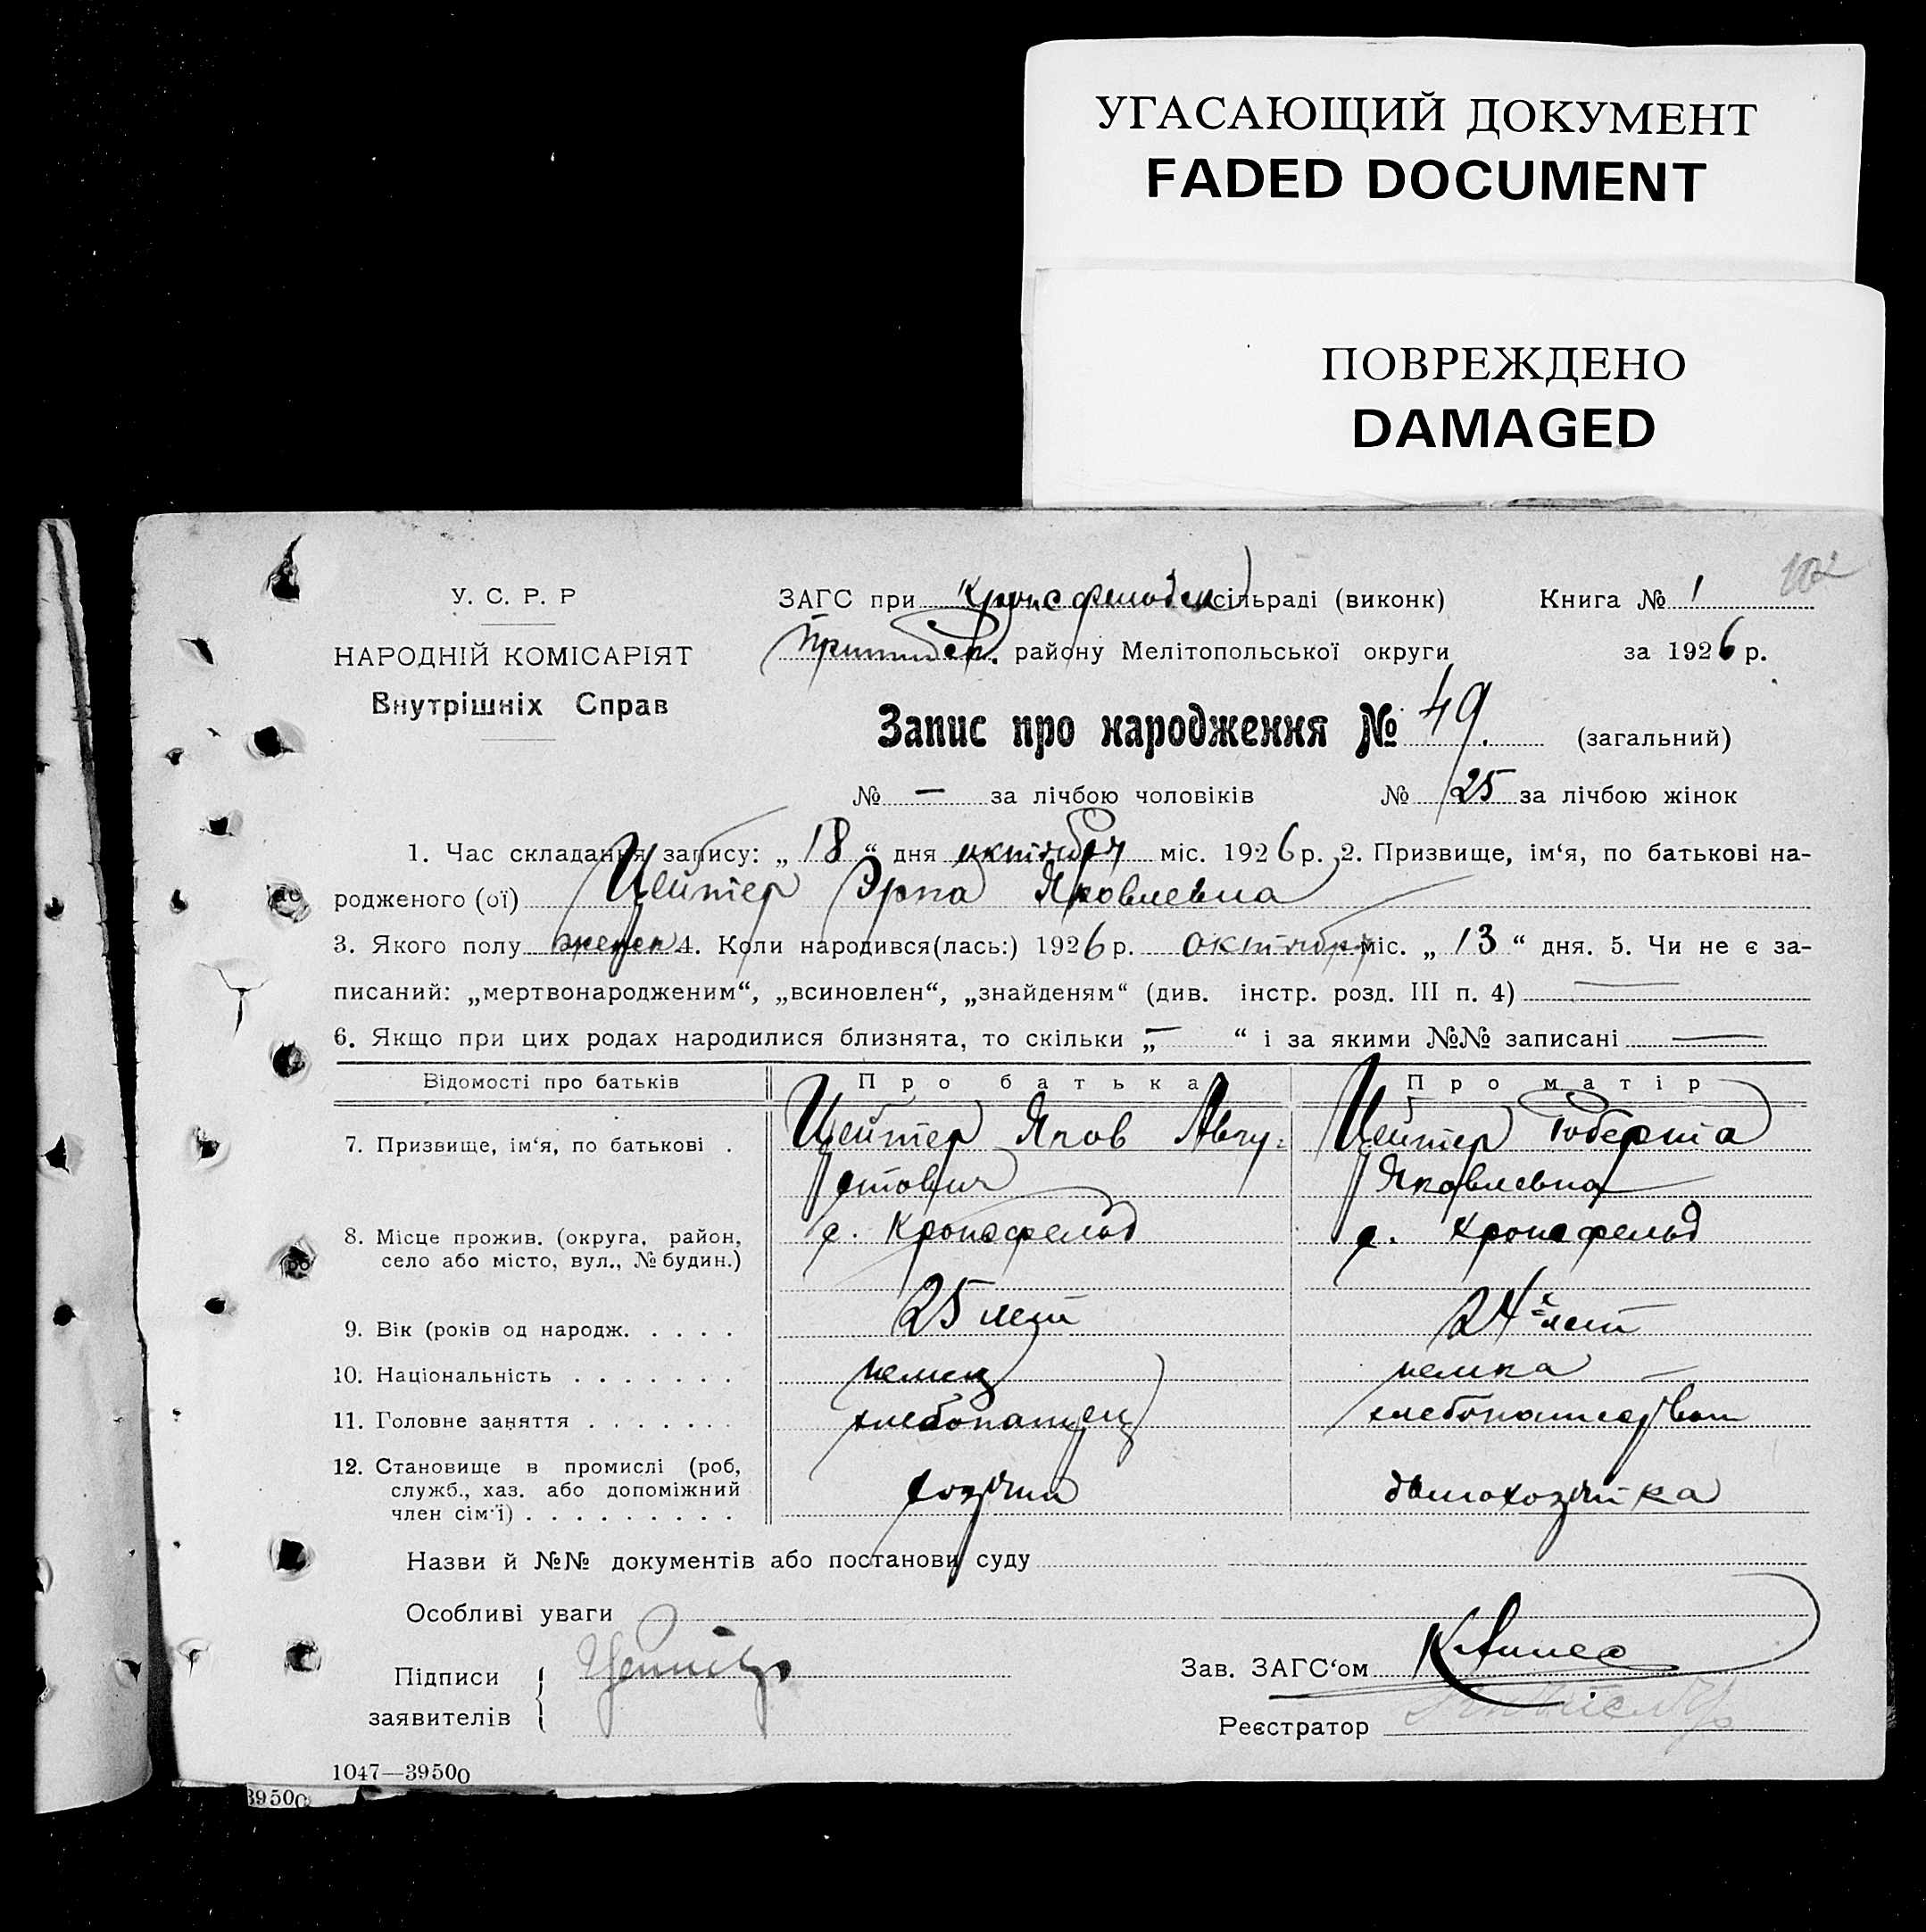 УГАСАЮЩИЙ ДОКУМЕНТ
FADED DOCUMENT
ПОВРЕЖДЕНО
DAMAGED
У. С. Р. Р
НАРОДНІЙ КОМІСАРІЯТ
Внутрішніх Справ
ЗАГС при Кронсфельдск сільраді (виконк) Книга № 1
102
Пришибск. району Мелітопольської округи за 1926 р.
Запис про народження № 49. (загальний)
№ — за лічбою чоловіків № 25 за лічбою жінок
1. Час складання запису: „ 18 “ дня октября міс. 1926 р. 2. Призвище, ім‘я, по батькові на-
родженого (ої) Цейтер Эрна Яковлевна
3. Якого полу женск 4. Коли народився(лась:) 1926 р. октября міс. „ 13 “ дня. 5. Чи не є за-
писаний: „мертвонародженим“, „всиновлен“, „знайденям“ (див. інстр. розд. III п. 4) —
6. Якщо при цих родах народилися близнята, то скільки „ — “ і за якими №№ записані —
Відомості про батьків Про батька Про матір
7. Призвище, ім‘я, по батькові . Цейтер Яков Авгу- Цейтер Роберта
стович Яковлевна
8. Місце прожив. (округа, район, с. Кронсфельд с. Кронсфельд
село або місто, вул., № будин.)
9. Вік (років од народж. . . . . 25 лет 24 лет
10. Національність . . . . . . . немец немка
11. Головне заняття . . . . . . . хлебопашец хлебопашество
12. Становище в промислі (роб, хозяин домохозяйка
служб., хаз. або допоміжний
член сім‘ї) . . . . . . . . .
Назви й №№ документів або постанови суду
Особливі уваги
Підписи
заявителів
Зав. ЗАГС‘ом
Реєстратор
1047—39500
39500